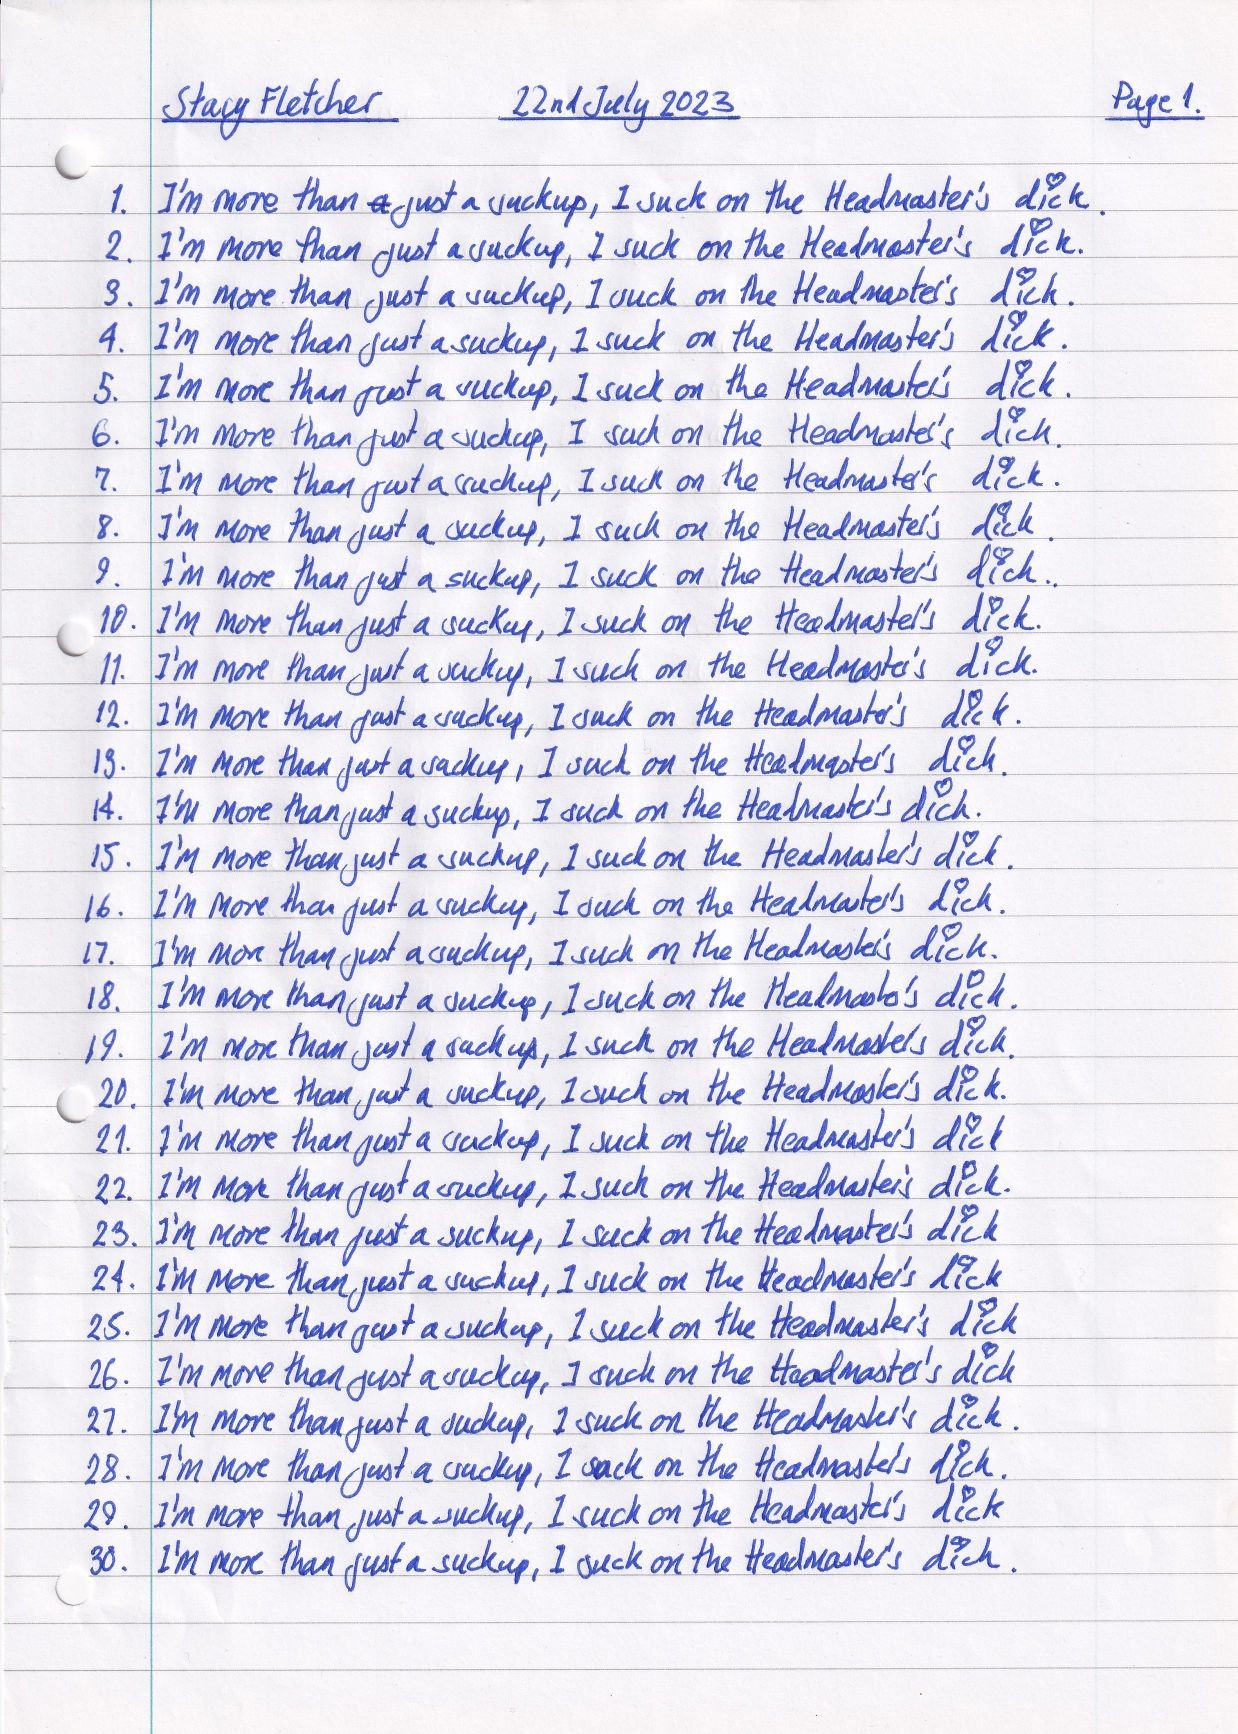 Stacy Fletcher 22nd July 2023 Page 1.
1. I'm more than just a suckup, I suck on the Headmaster's dick.
2. I'm more than just a suckup, I suck on the Headmaster's dick.
3. I'm more than just a suckup, I suck on the Headmaster's dick.
4. I'm more than just a suckup, I suck on the Headmaster's dick.
5. I'm more than just a suckup, I suck on the Headmaster's dick.
6. I'm more than just a suckup, I suck on the Headmaster's dick.
7. I'm more than just a suckup, I suck on the Headmaster's dick.
8. I'm more than just a suckup, I suck on the Headmaster's dick.
9. I'm more than just a suckup, I suck on the Headmaster's dick..
10. I'm more than just a suckup, I suck on the Headmaster's dick.
11. I'm more than just a suckup, I suck on the Headmaster's dick.
12. I'm more than just a suckup, I suck on the Headmaster's dick.
13. I'm more than just a suckup, I suck on the Headmaster's dick.
14. I'm more than just a suckup, I suck on the Headmaster's dick.
15. I'm more than just a suckup, I suck on the Headmaster's dick.
16. I'm more than just a suckup, I suck on the Headmaster's dick.
17. I'm more than just a suckup, I suck on the Headmaster's dick.
18. I'm more than just a suckup, I suck on the Headmaster's dick.
19. I'm more than just a suckup, I suck on the Headmaster's dick.
20. I'm more than just a suckup, I suck on the Headmaster's dick.
21. I'm more than just a suckup, I suck on the Headmaster's dick
22. I'm more than just a suckup, I suck on the Headmaster's dick.
23. I'm more than just a suckup, I suck on the Headmaster's dick
24. I'm more than just a suckup, I suck on the Headmaster's dick
25. I'm more than just a suckup, I suck on the Headmaster's dick
26. I'm more than just a suckup, I suck on the Headmaster's dick
27. I'm more than just a suckup, I suck on the Headmaster's dick.
28. I'm more than just a suckup, I suck on the Headmaster's dick.
29. I'm more than just a suckup, I suck on the Headmaster's dick
30. I'm more than just a suckup, I suck on the Headmaster's dick.